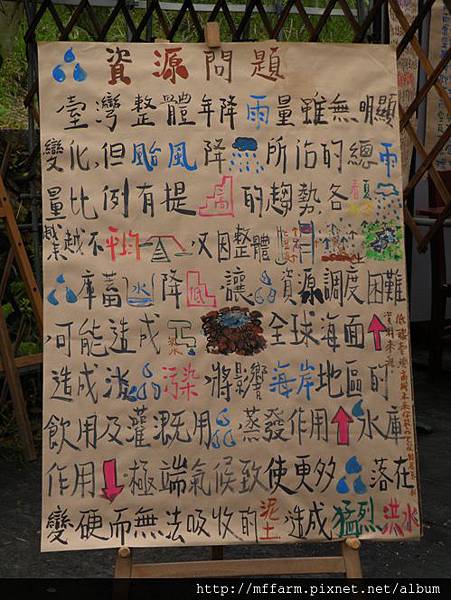 資源問題
臺灣整體年降雨量雖無明顯
變化,但颱風降所佔的總雨
量比例有提高的趨勢各
越來越不平均 又因整體
庫蓄水降低讓資源調度困難
可能造成 全球海面
造成淡污染將影響海岸地區的
飲用及灌溉用 蒸發作用 水庫
作用 極端氣候致使更多 落在
變硬而無法吸收的泥土造成猛烈洪水
http://mffarm.pixnet.net/album